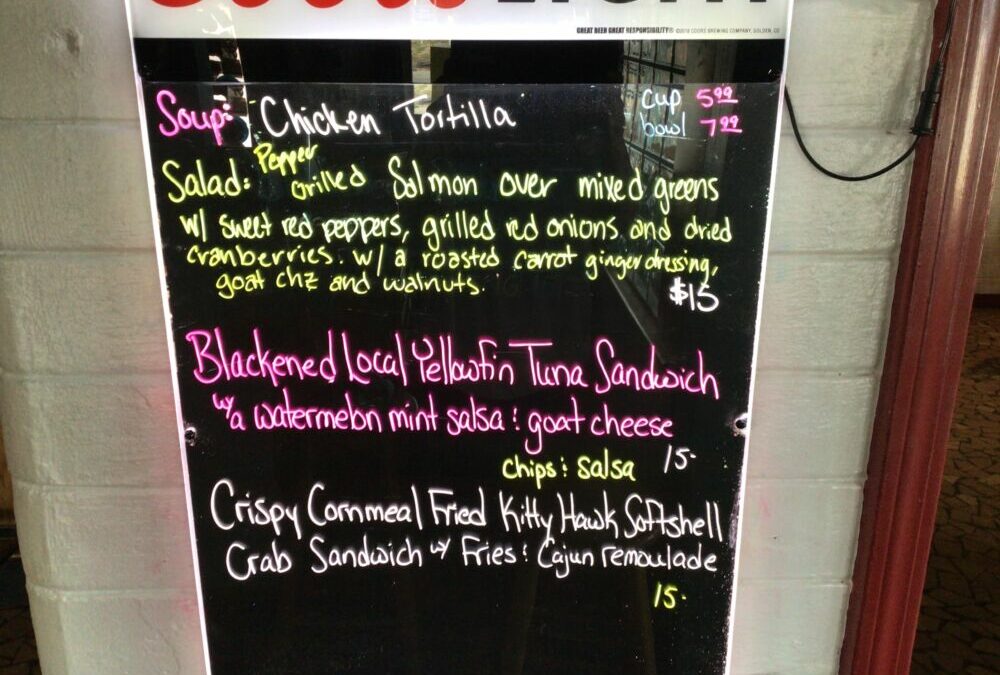 Coors LIGHT
GREAT BEER GREAT RESPONSIBILITY® ©2018 COORS BREWING COMPANY, GOLDEN, CO
Soup: Chicken Tortilla cup 5.99
bowl 7.99
Salad: Pepper Grilled Salmon over mixed greens
w/ sweet red peppers, grilled red onions and dried
cranberries. w/ a roasted carrot ginger dressing,
goat chz and walnuts.
$15
Blackened Local Yellowfin Tuna Sandwich
w/ a watermelon mint salsa & goat cheese
chips & salsa 15-
Crispy Cornmeal Fried Kitty Hawk Softshell
Crab Sandwich w/ Fries & Cajun remoulade
15-